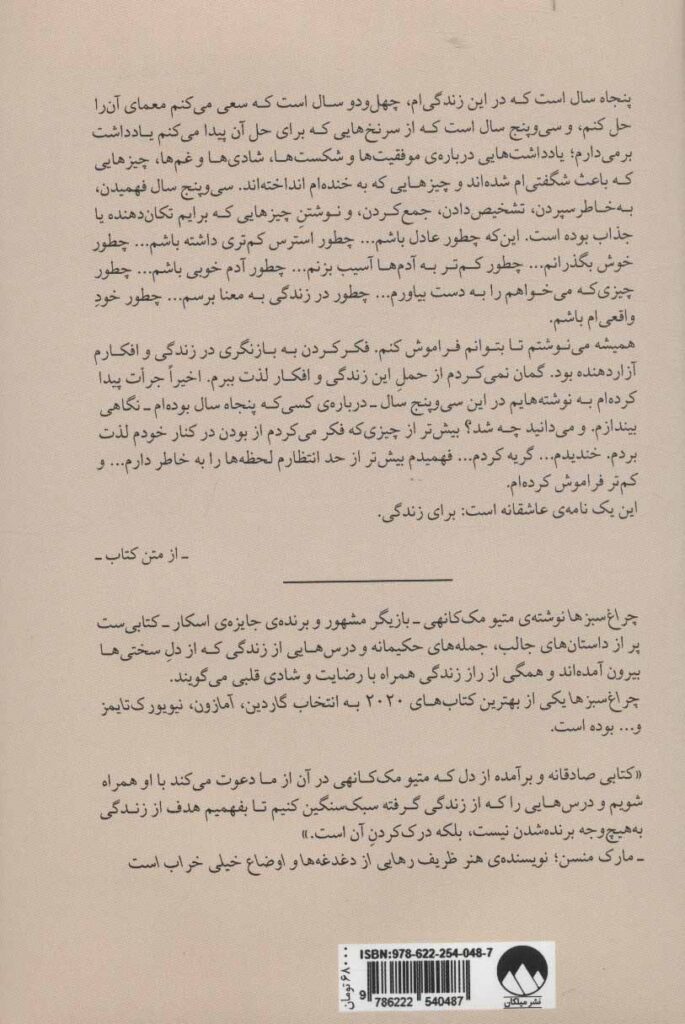 پنجاه سال است که در این زندگی‌ام، چهل‌ودو سال است که سعی می‌کنم معمای آن‌را
حل کنم، و سی‌وپنج سال است که از سرنخ‌هایی که برای حل آن پیدا می‌کنم یادداشت
برمی‌دارم؛ یادداشت‌هایی درباره‌ی موفقیت‌ها و شکست‌ها، شادی‌ها و غم‌ها، چیزهایی
که باعث شگفتی‌ام شده‌اند و چیزهایی که به خنده‌ام انداخته‌اند. سی‌وپنج سال فهمیدن،
به‌خاطرسپردن، تشخیص‌دادن، جمع‌کردن، و نوشتنِ چیزهایی که برایم تکان‌دهنده یا
جذاب بوده است. این‌که چطور عادل باشم... چطور استرس کم‌تری داشته باشم... چطور
خوش بگذرانم... چطور کم‌تر به آدم‌ها آسیب بزنم... چطور آدم خوبی باشم... چطور
چیزی‌که می‌خواهم را به دست بیاورم... چطور در زندگی به معنا برسم... چطور خودِ
واقعی‌ام باشم.
همیشه می‌نوشتم تا بتوانم فراموش کنم. فکرکردن به بازنگری در زندگی و افکارم
آزاردهنده بود. گمان نمی‌کردم از حملِ این زندگی و افکار لذت ببرم. اخیراً جرأت پیدا
کرده‌ام به نوشته‌هایم در این سی‌وپنج سال ـ درباره‌ی کسی‌که پنجاه سال بوده‌ام ـ نگاهی
بیندازم. و می‌دانید چه شد؟ بیش‌تر از چیزی‌که فکر می‌کردم از بودن در کنار خودم لذت
بردم. خندیدم... گریه کردم... فهمیدم بیش‌تر از حد انتظارم لحظه‌ها را به خاطر دارم... و
کم‌تر فراموش کرده‌ام.
این یک نامه‌ی عاشقانه است: برای زندگی.
ـ از متن کتاب ـ
چراغ‌سبزها نوشته‌ی متیو مک‌کانهی ـ بازیگر مشهور و برنده‌ی جایزه‌ی اسکار ـ کتابی‌ست
پر از داستان‌های جالب، جمله‌های حکیمانه و درس‌هایی از زندگی که از دلِ سختی‌ها
بیرون آمده‌اند و همگی از راز زندگی همراه با رضایت و شادی قلبی می‌گویند.
چراغ‌سبزها یکی از بهترین کتاب‌های ۲۰۲۰ به انتخاب گاردین، آمازون، نیویورک‌تایمز
و... بوده است.
«کتابی صادقانه و برآمده از دل که متیو مک‌کانهی در آن از ما دعوت می‌کند با او همراه
شویم و درس‌هایی را که از زندگی گرفته سبک‌سنگین کنیم تا بفهمیم هدف از زندگی
به‌هیچ‌وجه برنده‌شدن نیست، بلکه درک‌کردنِ آن است.»
ـ مارک منسن؛ نویسنده‌ی هنر ظریف رهایی از دغدغه‌ها و اوضاع خیلی خراب است
ISBN:978-622-254-048-7
۶۸۰۰۰ تومان
9 786222 540487
نشر میلکان